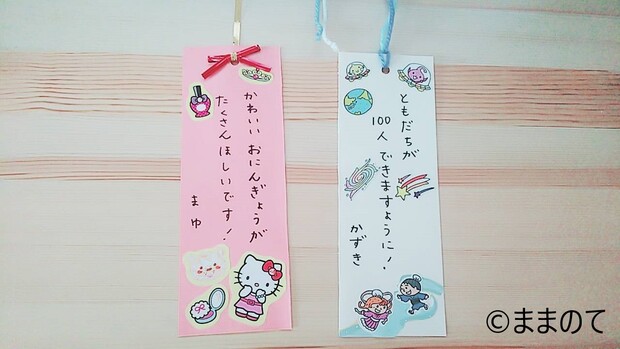 かわいい おにんぎょうが
たくさん ほしいです!
まゆ
ともだちが
100人 できますように!
かずき
©ままのて